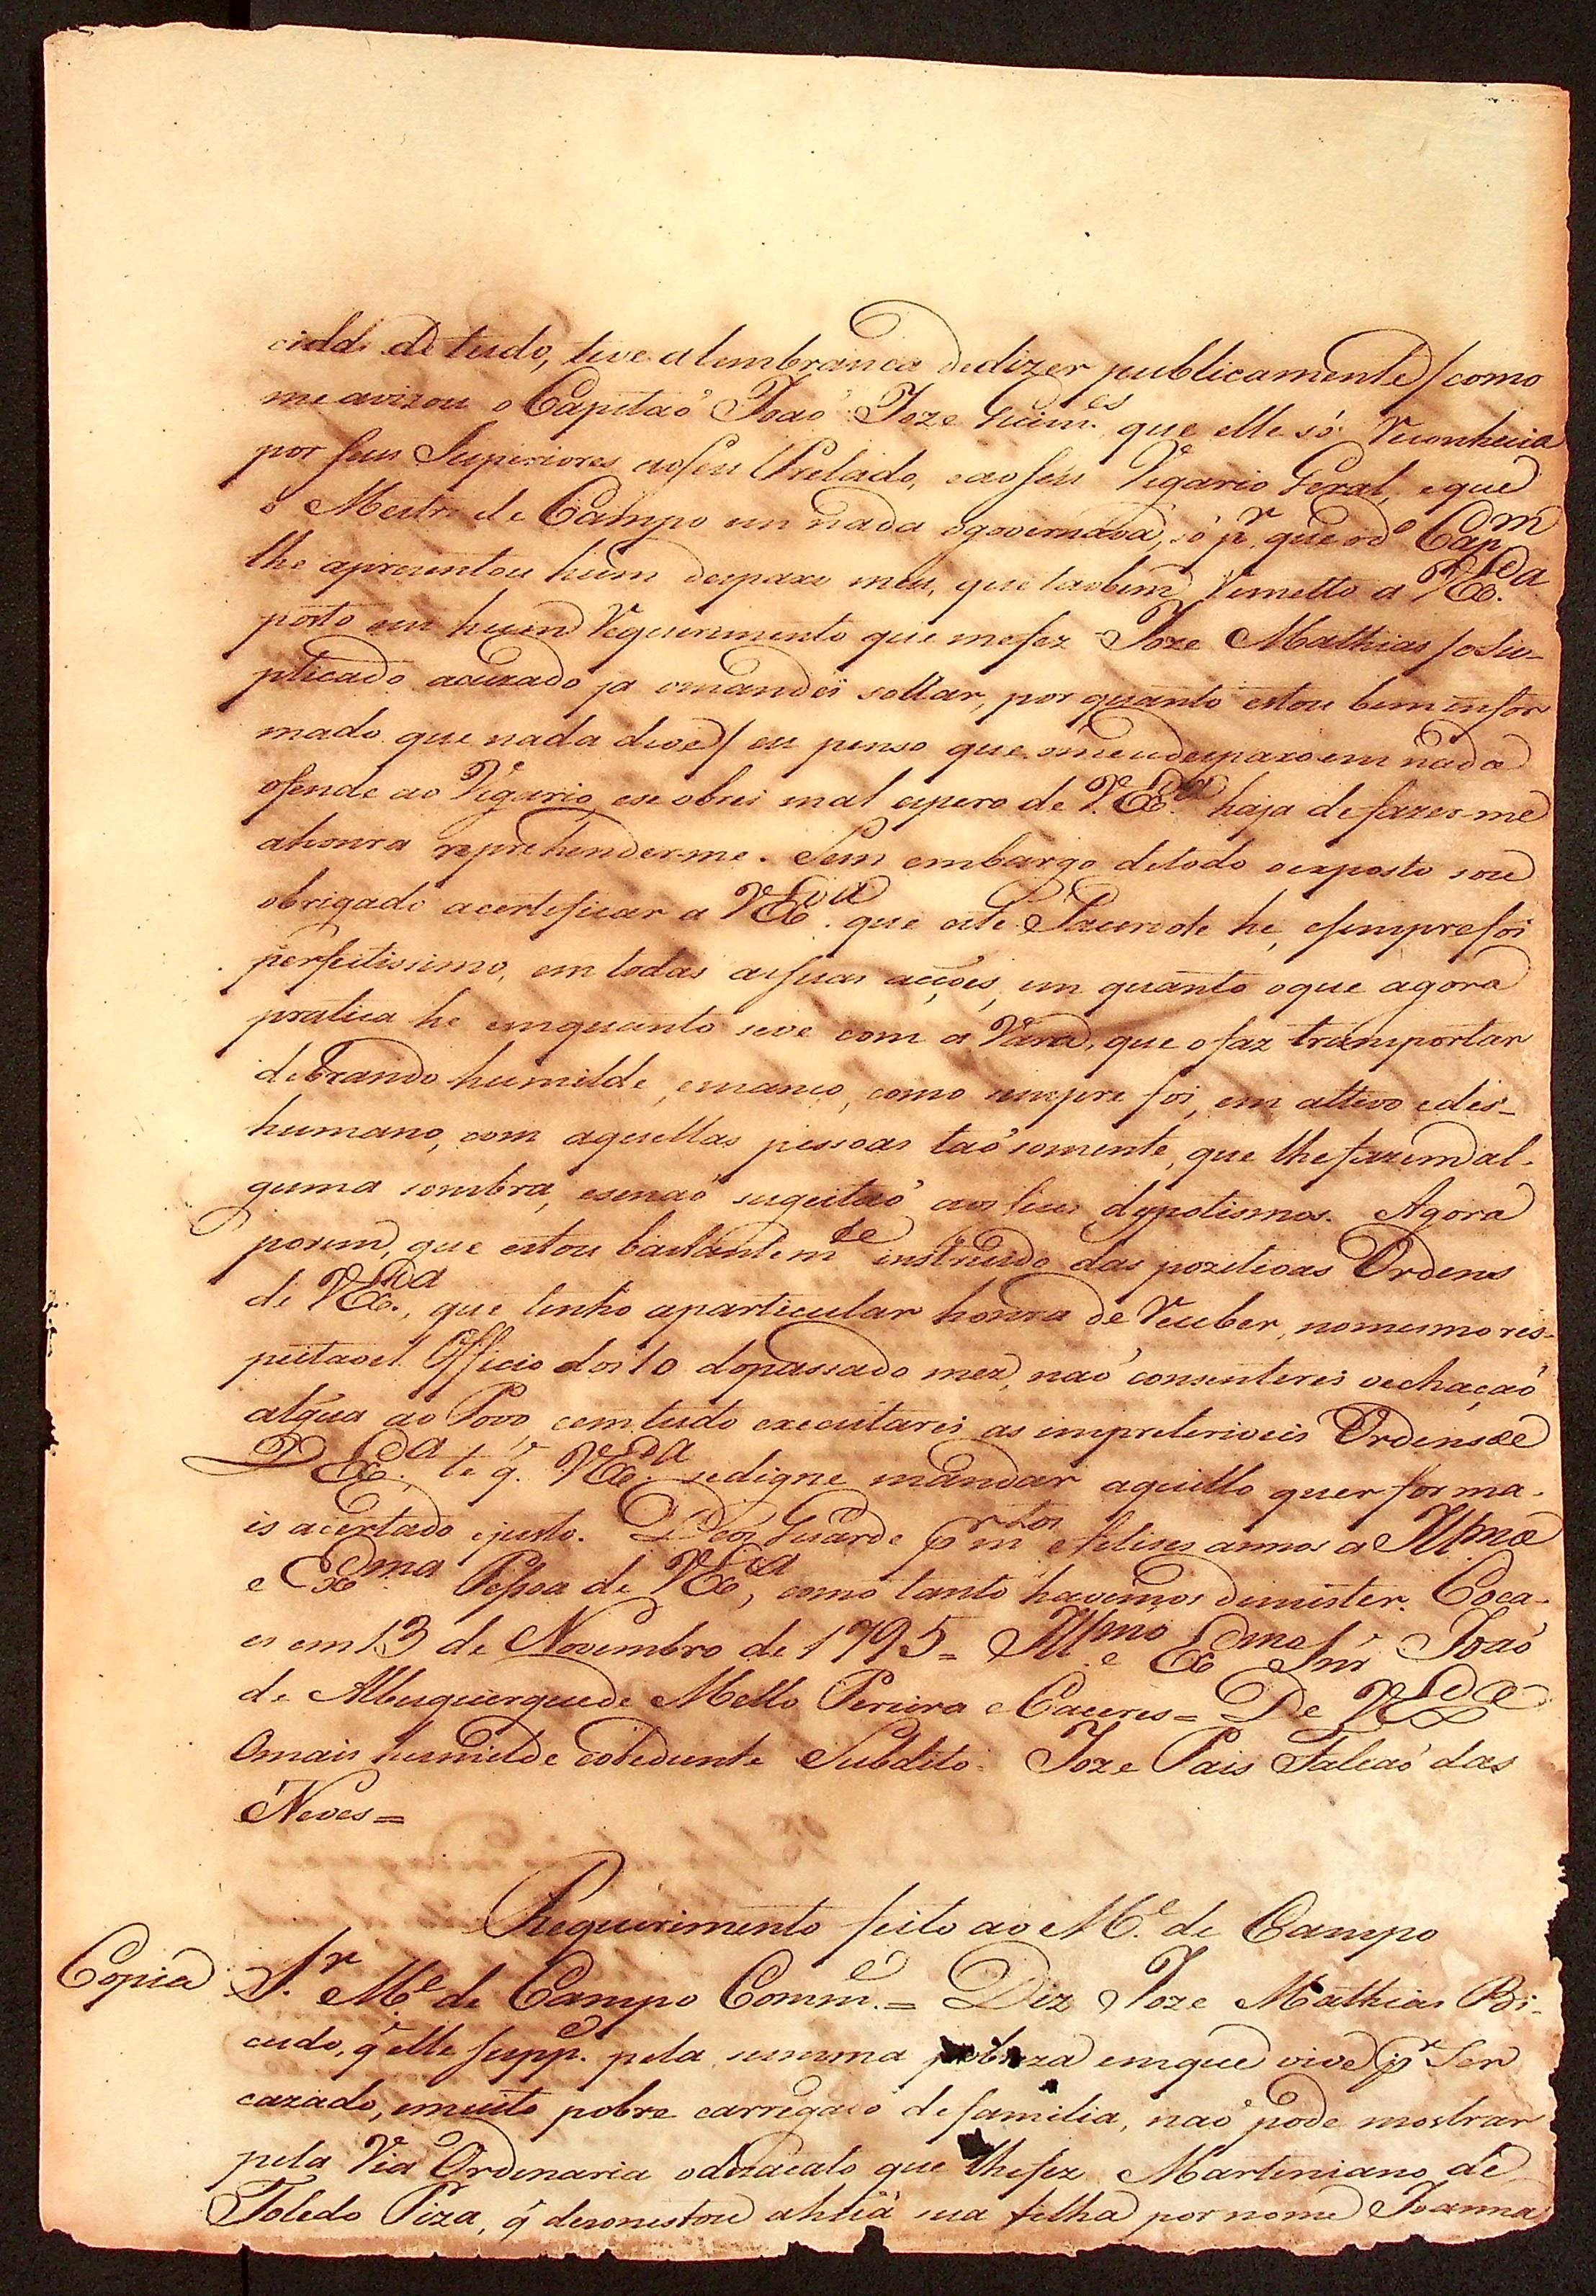 cidde de tudo, teve a lembrança dedizer publicamente / como
me avizou o Capitaõ Joaõ Joze Guim.es que elle só reconhecia
por seus Superiores aoseu Prelado, eaoseu Vigario Geral, eque
o Mestre de Campo em nada ogovernava, só p.r que od.o Cap.m
lhe aprezentou hum despaxo meu, que taobem remetto a VEx.cia
posto em hum requerimento que mefez Joze Mathias / oSu-
plicado acuzado ja omandei soltar, por quanto estou bem infor
mado que nada deve / eu penso que omeudespaxo em nada
ofende ao Vigario, ese obrei mal espero de V.Ex.cia haja de fazer-me
ahonra reprehenderme. Sem embargo detodo oexposto sou
obrigado acertificar a VEx.cia que este Sacerdote he, esempre foi
perfeitissimo, em todas assuas acções, em quanto oque agora
pratica he emquanto seve com a Vara, que ofaz transportar
debrando humilde, emanço, como sempre foi, em altivo edes-
humano, com aquellas pessoas taõ somente, que lhefazem al-
guma sombra, esenaõ sugeitaõ aos seus dyspotismos. Agora
porem, que estou bastantem.te instruido das pozitivas Ordens
de VEx.cia, que tenho aparticular honra de receber, nomesmo res-
peitavel Officio dos 10 dopassado mez, naõ consenterei vechaçaõ
algũa ao Povo, eemtudo executarei as impreteriveis Ordens de
VEx.cia té q. VEx.cia sedigne mandar aquillo quer for ma-
is acertado ejusto. Deos Guarde p.r m.tos efelises annos a Ill.ma
e Ex.ma Pessoa de VEx.cia, como tanto havemos demister. Coca-
es em 13 de Novembro de 1795 = Ill.mo e Ex.mo Snr Joaõ
de Albuquerquede Mello Pereira e Caceres = De VEx.cia
Omais humilde eobediente Subdito. Joze Pais Falcaõ das
Neves =
Requirimento feito ao M.e de Campo
Copia
S.r M.e de Campo Comm.e = Diz Joze Mathias Bi-
cudo, q̃ elle supp.e pela summa pobreza emque vive p.r Ser
cazado, emuito pobre carregado defamilia, naõ pode mostrar
pela Via Ordenaria odezacato que lhefez Marteniano de
Toledo Piza, q̃ dezonestou ahũa sua filha por nome Joanna